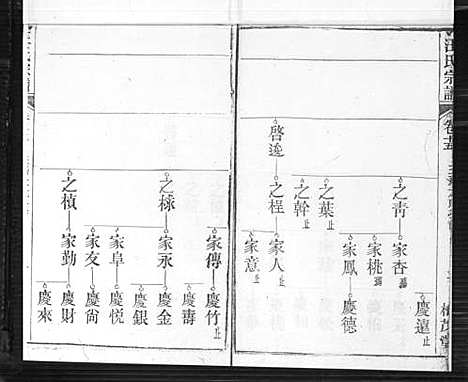 汪氏宗譜
卷十五
慶遠止
之靑
家杏止
家桃止
家鳳
慶德
之葉止
之幹止
啓逵
之桯
家人止
家意止
家傳止
慶竹止
之梂
家永
慶壽
慶金
慶銀
家阜
慶悅
家友
慶尙
之楨
家勤
慶財
慶來